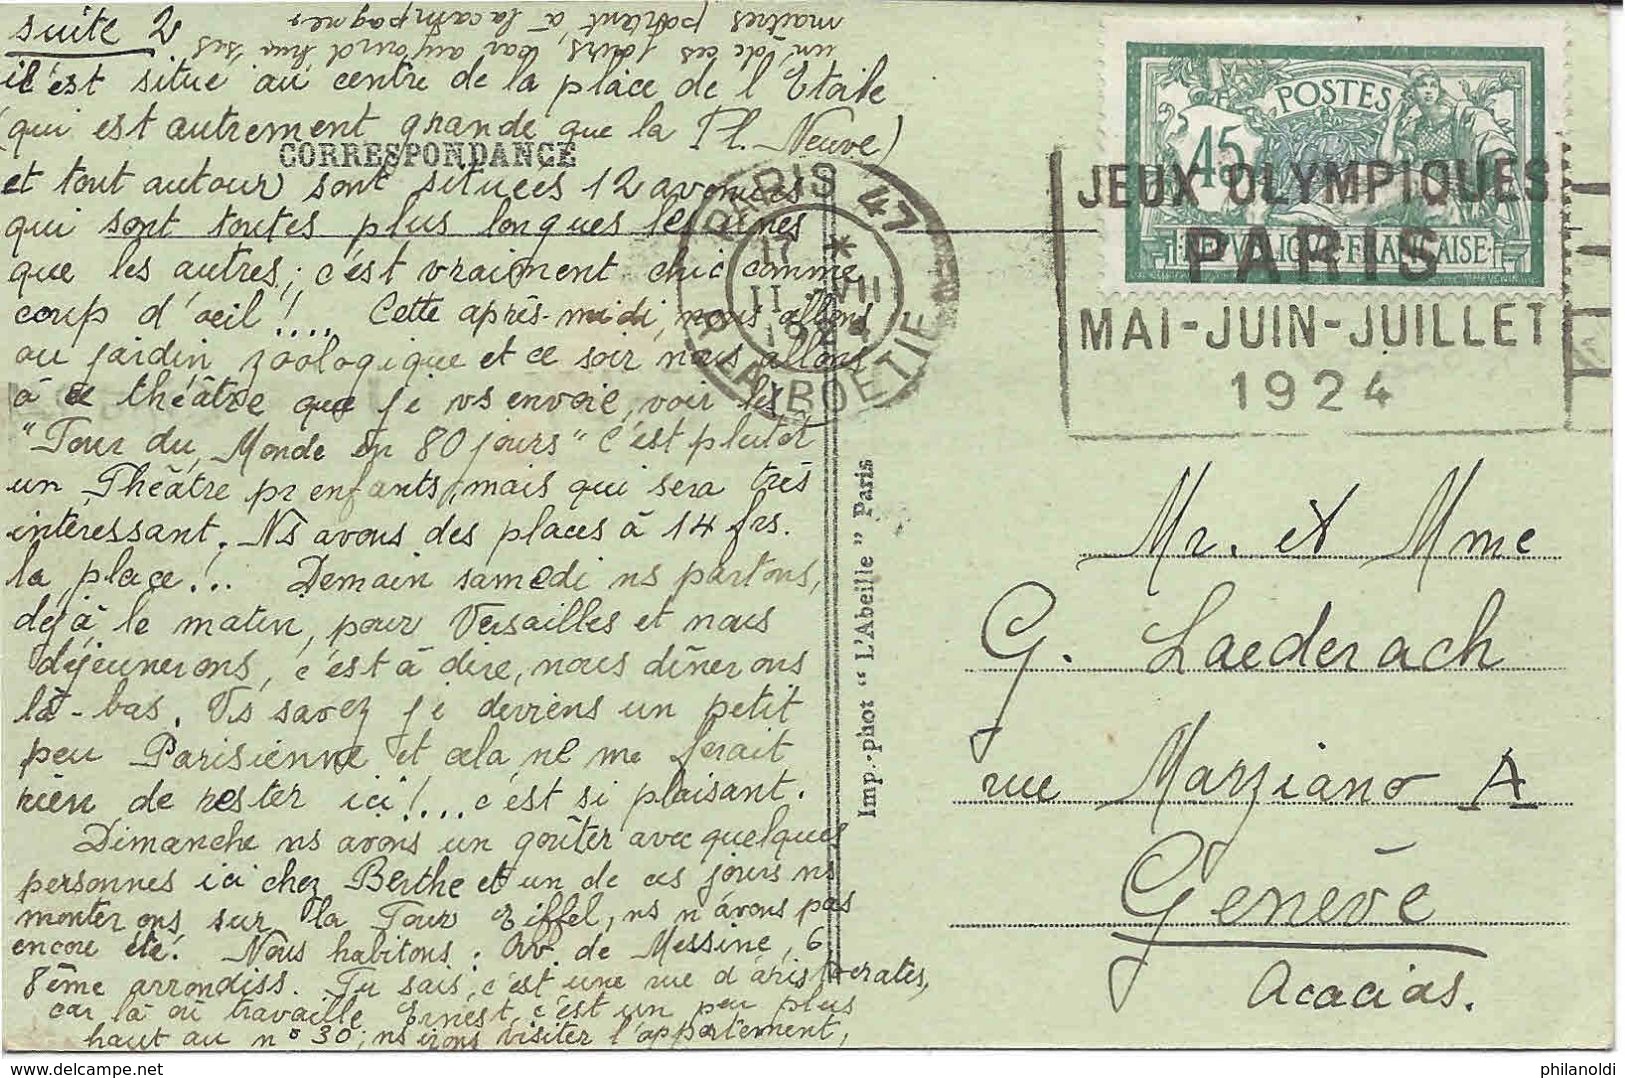 suite 2
il est situé au centre de la place de l'Etoile
(qui est autrement grande que la Pl. Neuve)
CORRESPONDANCE
et tout autour sont situées 12 avenues
qui sont toutes plus longues les unes
que les autres; c'est vraiment chic comme
coup d'œil!.... Cette après-midi, nous allons
au jardin zoologique et ce soir, nous allons
à ce théâtre que je vs envoie, voir les
"Tour du Monde en 80 jours" C'est plutôt
un Théâtre pr enfants, mais qui sera très
intéressant. Ns avons des places à 14 frs.
la place!.. Demain samedi ns partons,
déjà le matin, pour Versailles et nous
déjeunerons, c'est à dire, nous dînerons
là-bas. Vs savez je deviens un petit
peu Parisienne et cela ne me ferait
rien de rester ici!... c'est si plaisant.
Dimanche ns avons un goûter avec quelques
personnes ici chez Berthe et un de ces jours ns
monterons sur la Tour Eiffel, ns n'avons pas
encore été! Nous habitons: Av. de Messine, 6
8ème arrondiss. Tu sais, c'est une rue d'aristocrates,
car là où travaille Ernest, c'est un peu plus
haut au n° 30; ns irons visiter l'appartement,
un de ces jours, car aujourd'hui ses
maîtres partent à la campagne
Imp.-phot "L'Abeille" Paris
PARIS 47
17 *
11 VII
1924
R. LA BOETIE
45
POSTES
REPUBLIQUE FRANÇAISE
JEUX OLYMPIQUES
PARIS
MAI-JUIN-JUILLET
1924
Mr. et Mme
G. Laederach
rue Marziano A
Genève
Acacias.
philanoldi